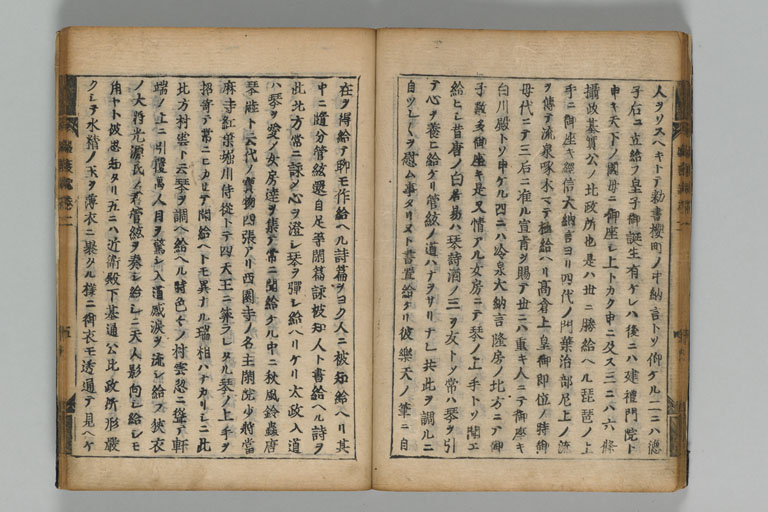 人ヲソスヘキトテ勅書櫻町ノ中納言トソ仰ケル一ニハ德
子右ニ立給フ皇子御誕生有ケレハ後ニハ建禮門院ト
申キ天下ノ國母ニ御座レ上トカク申ニ及ス三ニハ六條
攝政基實公ノ北政所也是ハ世ニ勝給ヘル琵琶ノ上
手ニ御座キ經信大納言ヨリ四代ノ門葉治部尼上ノ流
ヲ傳テ流泉啄木マテ極給ヘリ高倉上皇御即位ノ時御
母代ニテ三后ニ准ル宣旨ヲ賜テ世ニハ重キ人ニテ御座キ
白川殿トソ申ケル四ニハ冷泉大納言隆房ノ北方ニテ御
子數多御座キ是又情アル女房ニテ琴ノ上手トソ聞エ
給ヒシ昔唐ノ白居易ハ琴詩酒ノ三ヲ友トソ常ハ琴ヲ引
テ心ヲ養ヒ給ケリ管絃ノ道ハナヲサリナレ共此ヲ調ルニ
自ツレヽヲ慰ム事タリヌト書置給ケリ彼樂天ノ筆ニ自
在ヲ得給テ聊モ作給ヘル詩篇ヲヨク人ニ被知給ヘリ其
中ニ隨分管絃還自足等閑篇詠被知人ト書給ヘル詩ヲ
此北方常ニ詠メ心ヲ澄シ琴ヲ彈シ給ヘリケリ太政入道
ハ琴ヲ愛ノ女房達ヲ集テ常ニ聞給ケル中ニ秋風鈴蟲唐
琴睢ト云代ノ寶物四張アリ西園寺ノ名主閑院少將當
麻寺紅葉堀川侍從トテ四天王ニ筭ラレタル琴ノ上手ヲ
招寄テ常ニヒカリテ聞給ヘトモ異ナル瑞相ハナカリシニ此
北方村雲ト云琴ヲ調ヘ給ヘル時色々ノ村雲起ニ聳テ軒
端ノ上ニ引覆萬人目ヲ驚シ入道感淚ヲ流シ給フ狹衣
ノ大將光源氏ノ君管絃ヲ奏シ給シニ天人影向シ給シモ
角ヤト被思知タリ五ニハ近衞殿下基通公北政所形嚴
クシテ水精ノ玉ヲ薄衣ニ褁タル樣ニ御衣モ透通テ見ヘケ